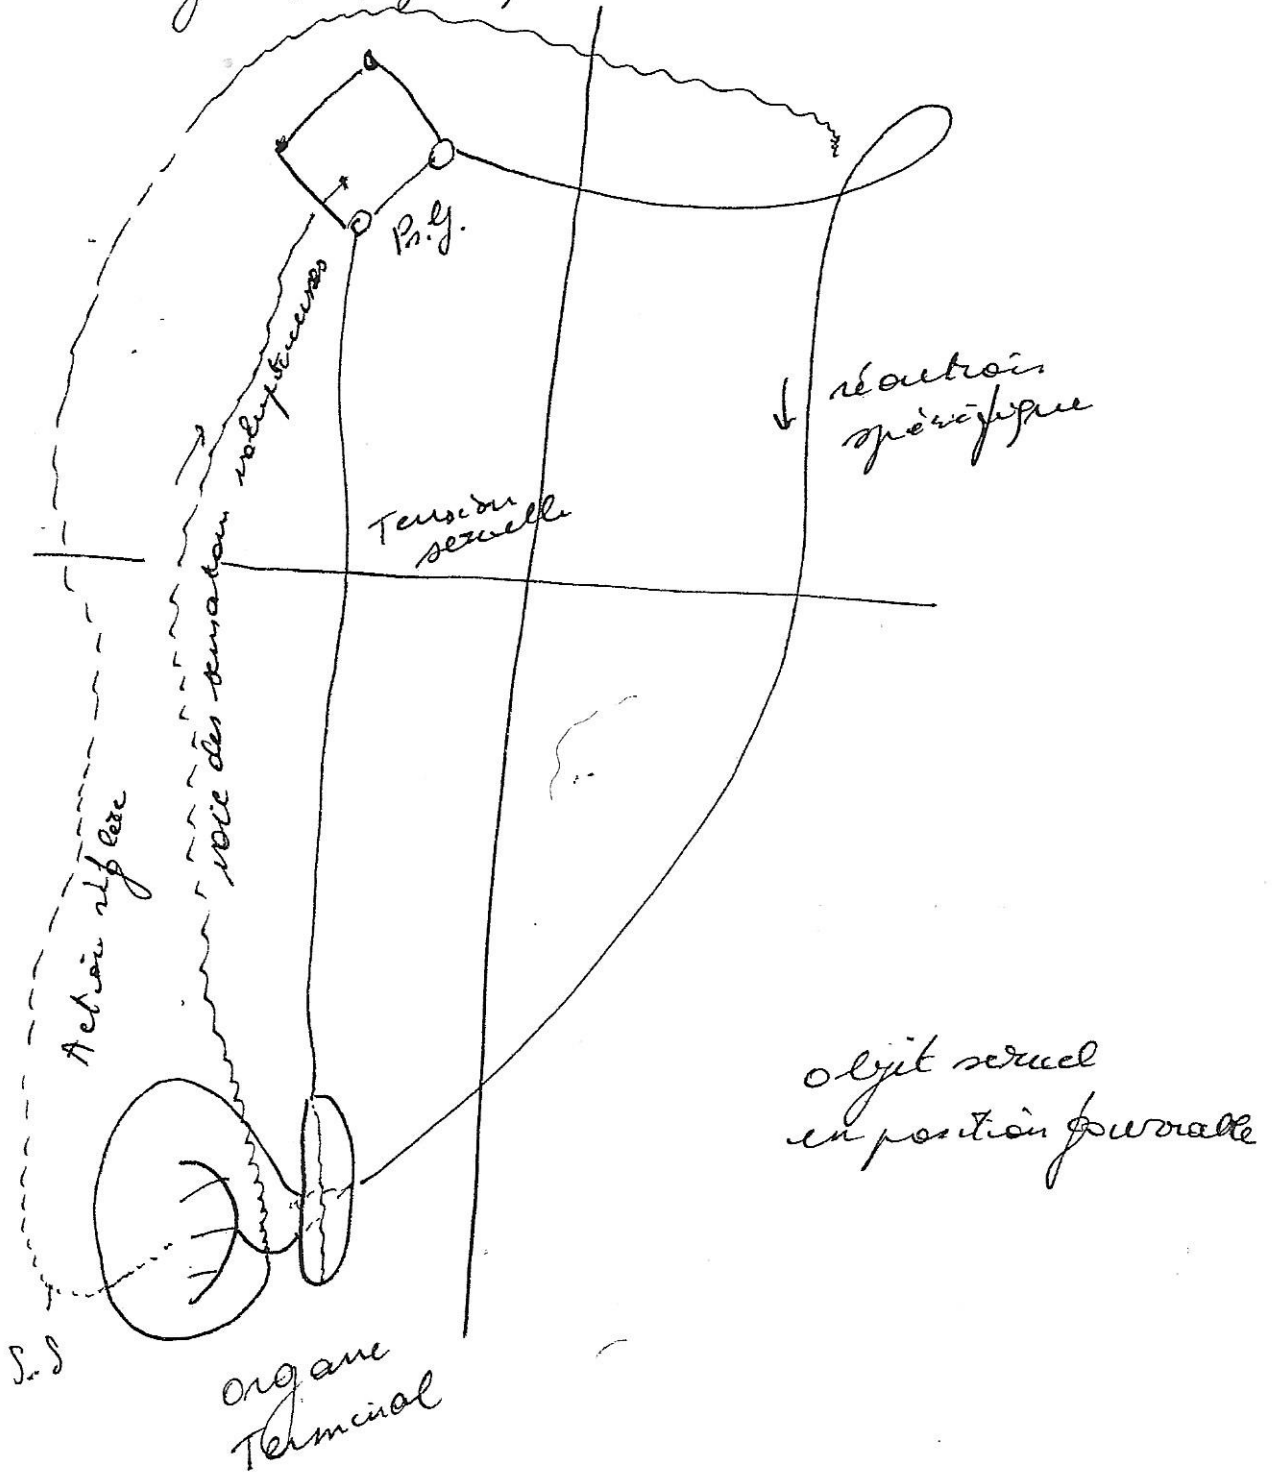 Ps.G.
voie des sensation voluptueuses
réaction
spécifique
Tension
sexuelle
Action réflexe
objet sexuel
en position favorable
S.S
organe
Terminal